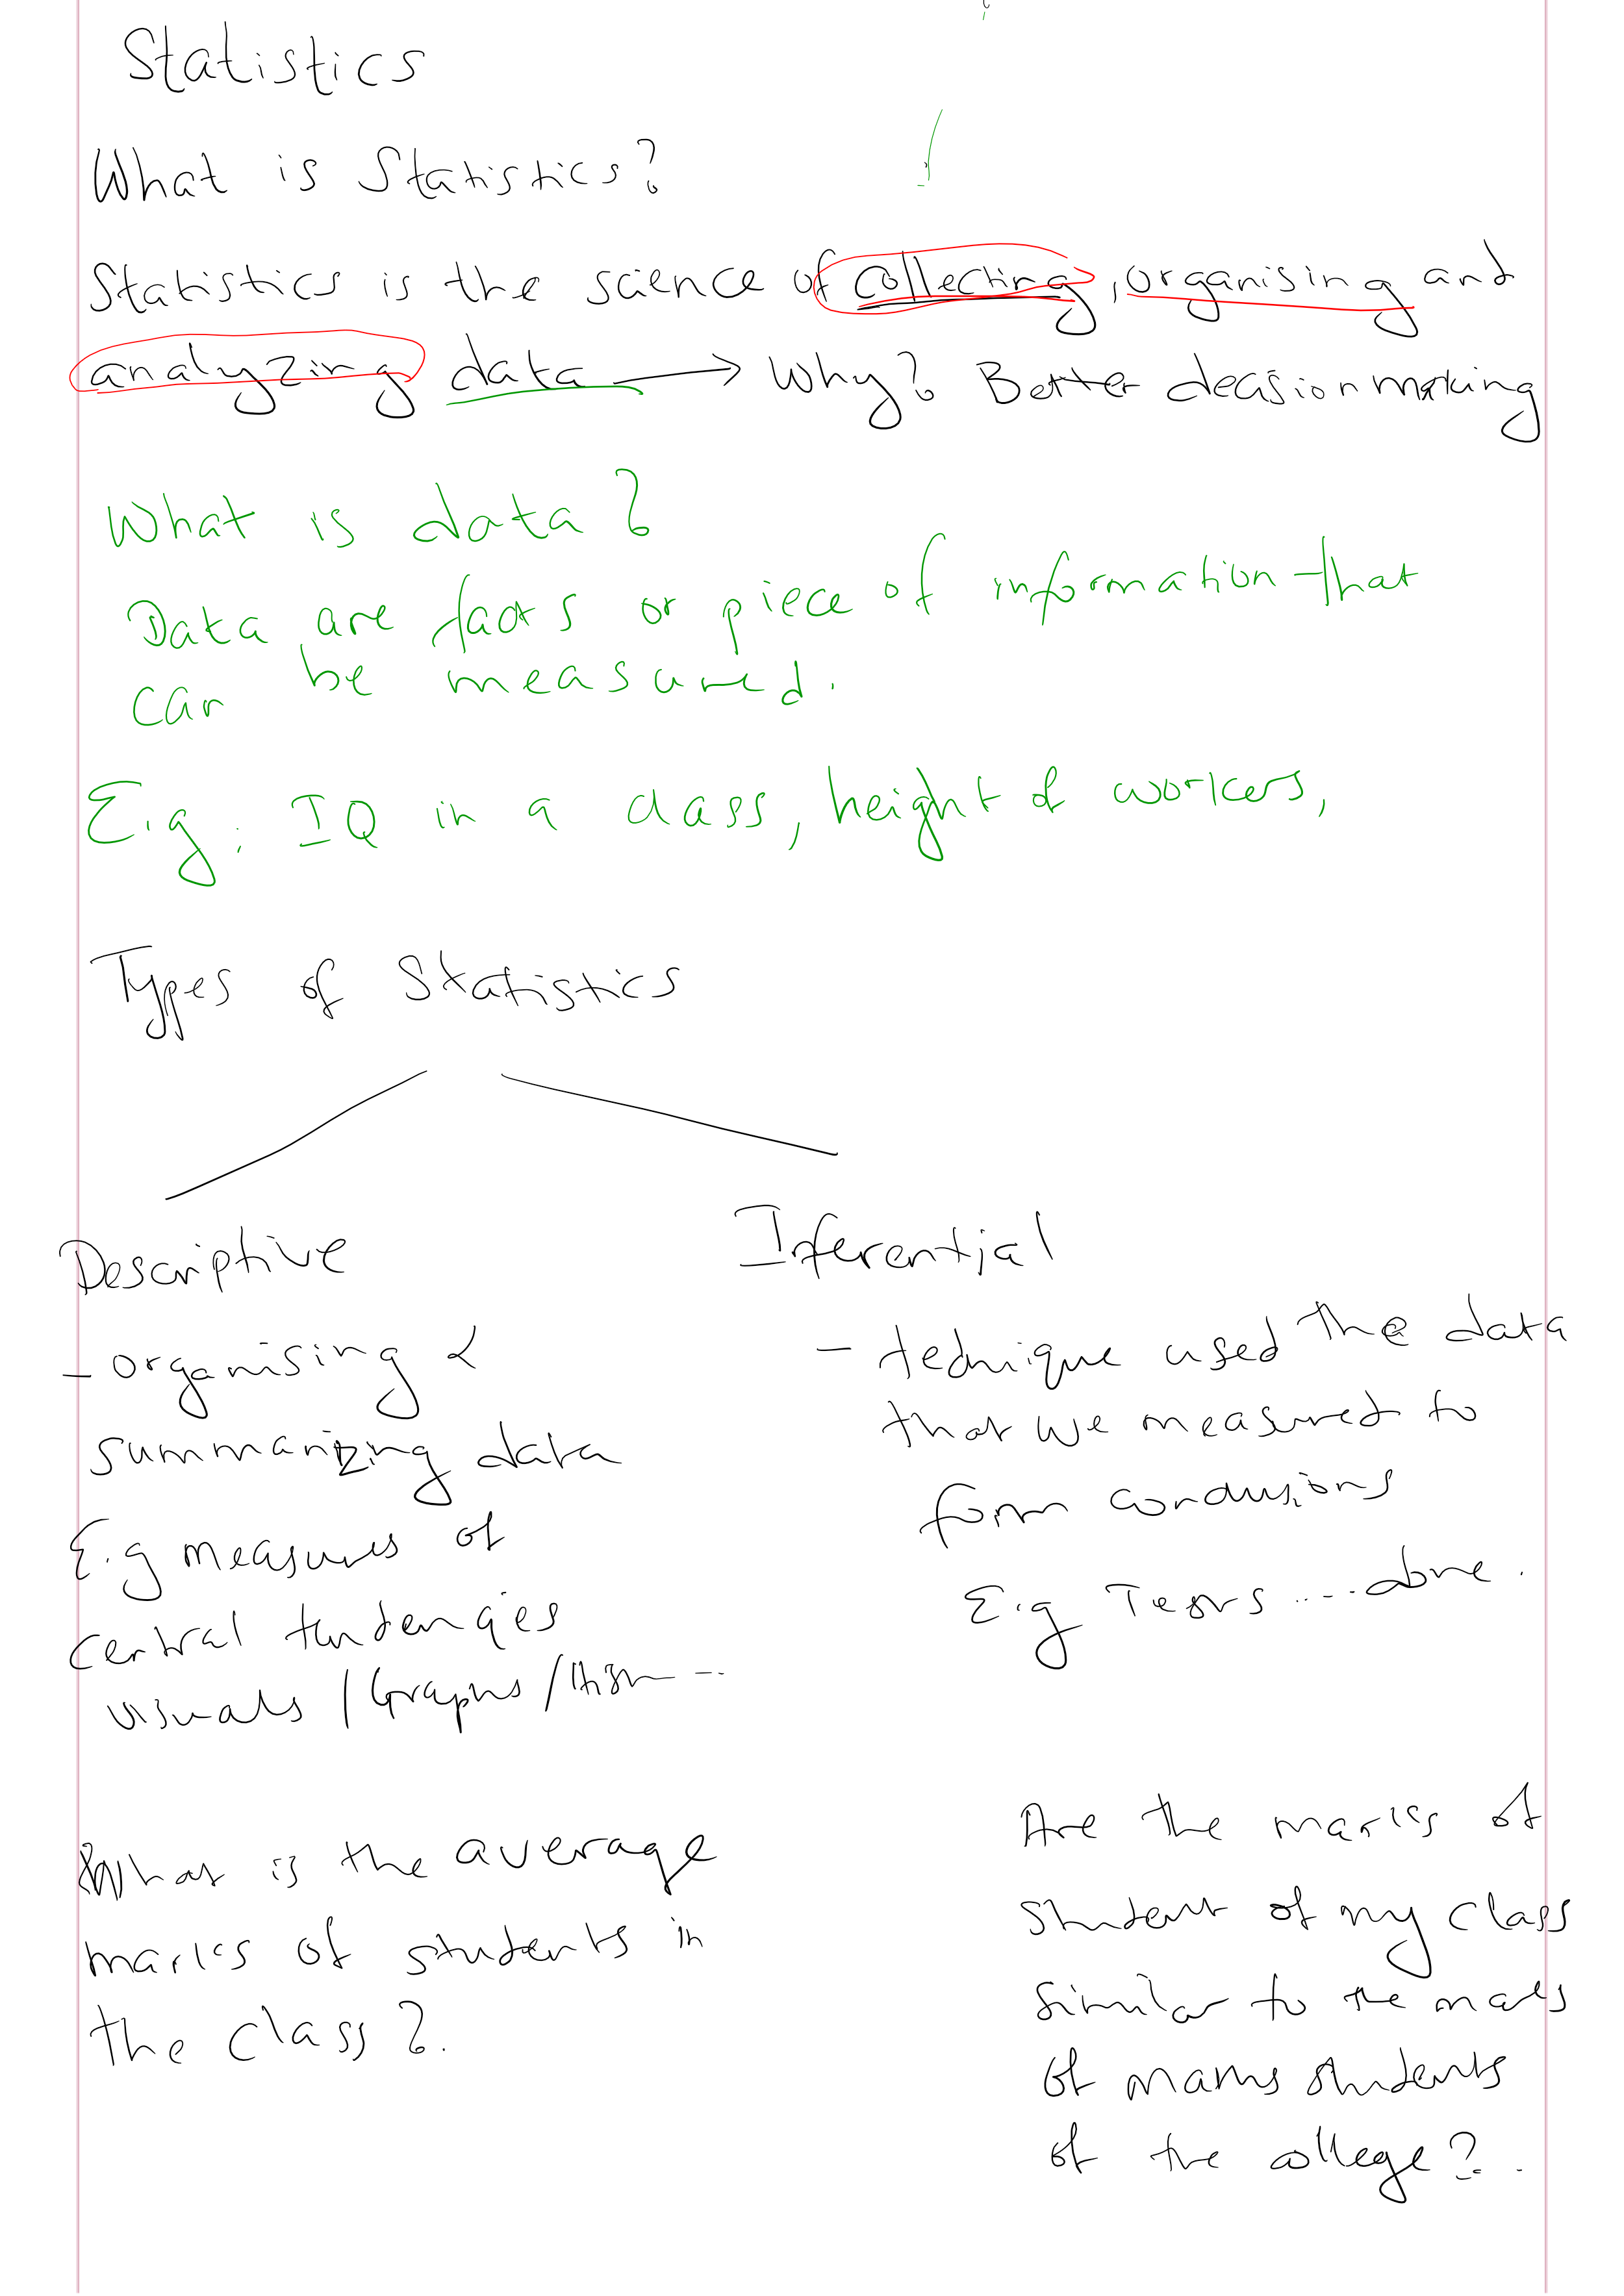 Statistics
What is Statistics?
Statistics is the science of collecting, organising and
analyzing data → Why? Better decasion making
What is data?
Data are facts or piece of information that
can be measured.
E.g: IQ in a class, height of workers,
Types of Statistics
Descriptive
- organising &
summarizing data
E.g measures of
central tendencies
visuals / Graphs /
Inferential
- technique used the data
that we measured to
form conclusions
E.g Tests ....
What is the average
marks of students in
the class?.
Are the marks of
student of my class
similar to the marks
of students
of the college?.